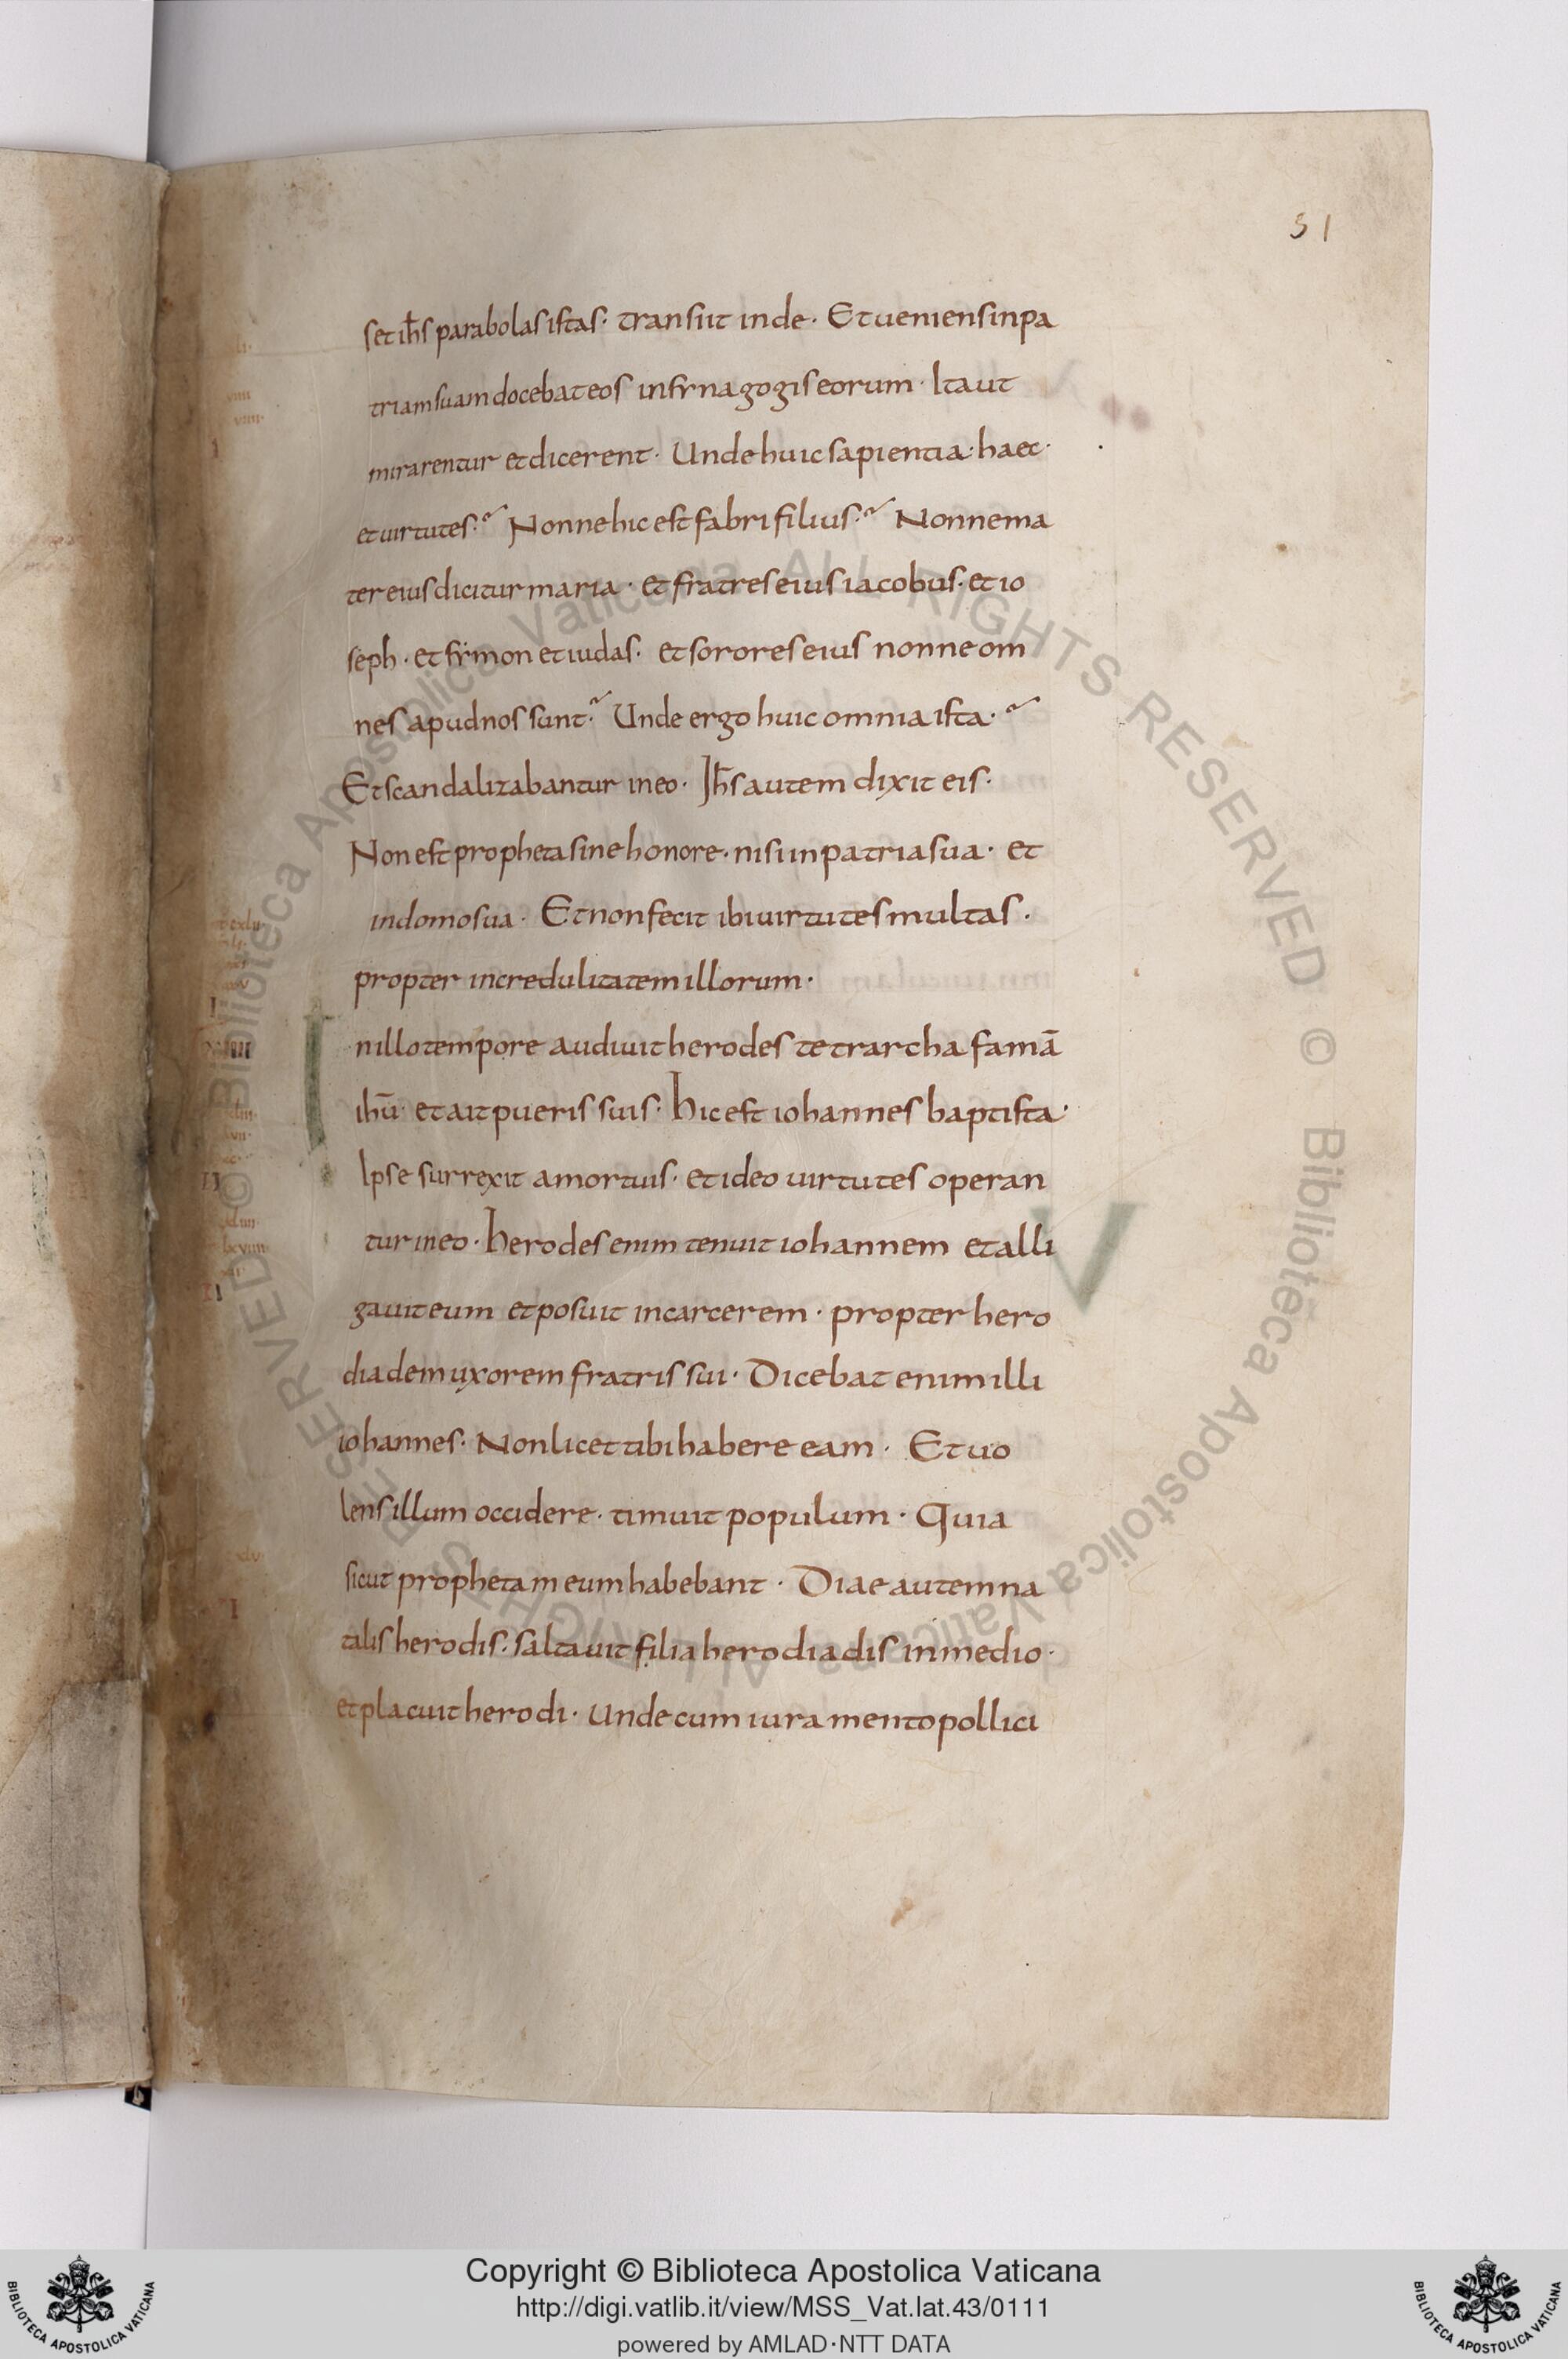 51
set ihs parabolas istas· transiit inde· Et ueniens in pa
triam suam docebat eos in synagogis eorum· Ita ut
mirarentur et dicerent· Unde huic sapientia· haec·
et uirtutes? Nonne hic est fabri filius? Nonne ma
ter eius dicitur maria· et fratres eius iacobus· et io
seph· et symon et iudas· et sorores eius nonne om
nes apud nos sunt? Unde ergo huic omnia ista?
Et scandalizabantur in eo· Ihs autem dixit eis·
Non est propheta sine honore· nisi in patria sua· et
in domo sua· Et non fecit ibi uirtutes multas·
propter incredulitatem illorum·
In illo tempore audiuit herodes tetrarcha famā
ihū· et ait pueris suis· Hic est iohannes baptista·
Ipse surrexit a mortuis· et ideo uirtutes operan
tur in eo· Herodes enim tenuit iohannem et alli
gauit eum et posuit in carcerem· propter hero
diadem uxorem fratris sui· Dicebat enim illi
iohannes· Non licet tibi habere eam· Et uo
lens illum occidere· timuit populum· Quia
sicut prophetam eum habebant· Diae autem na
talis herodis· saltauit filia herodiadis in medio·
et placuit herodi· Unde cum iuramento pollici
© Biblioteca Apostolica Vaticana ALL RIGHTS RESERVED © Biblioteca Apostolica Vaticana ALL RIGHTS RESERVED
Copyright © Biblioteca Apostolica Vaticana
http://digi.vatlib.it/view/MSS_Vat.lat.43/0111
powered by AMLAD·NTT DATA
BIBLIOTECA APOSTOLICA VATICANA
BIBLIOTECA APOSTOLICA VATICANA